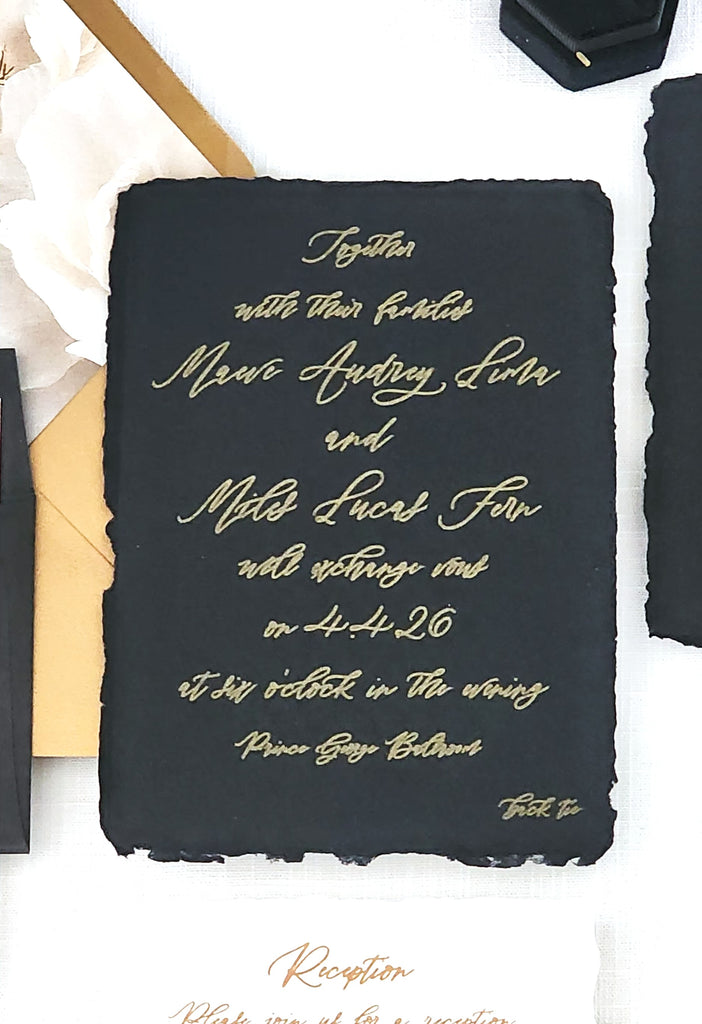 Together
with their families
Maeve Audrey Lima
and
Miles Lucas Fern
will exchange vows
on 4.4.26
at six o'clock in the evening
Prince George Ballroom
tie
Reception
Please join us for a reception